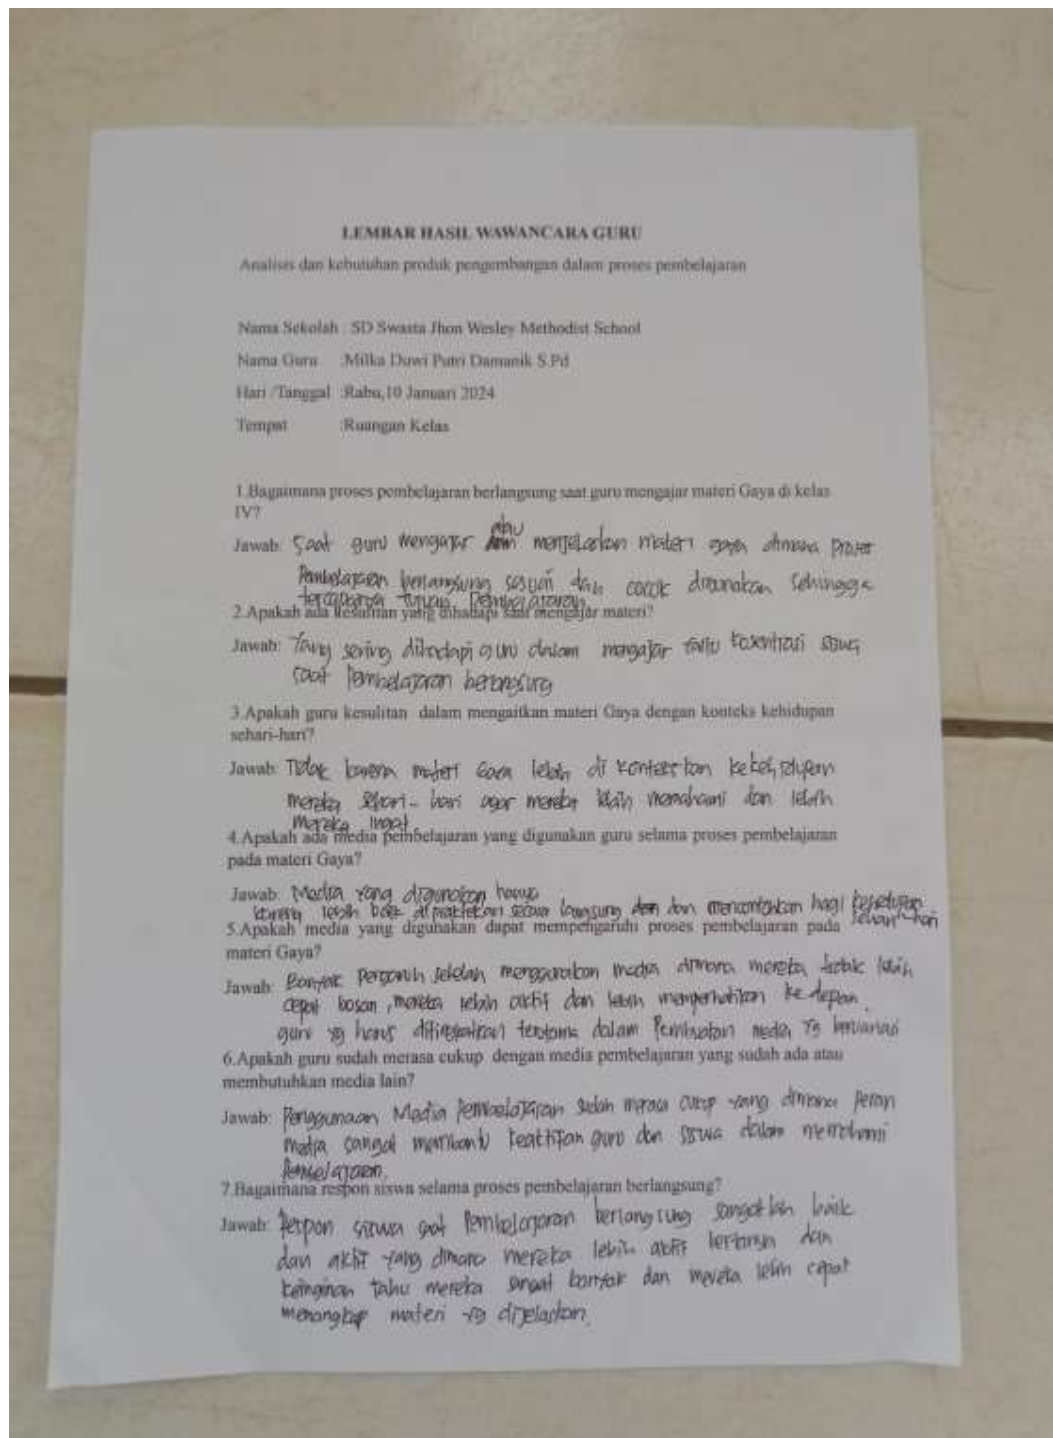 LEMBAR HASIL WAWANCARA GURU
Analisis dan kebutuhan produk pengembangan dalam proses pembelajaran
Nama Sekolah : SD Swasta Jhon Wesley Methodist School
Nama Guru :Milka Duwi Putri Damanik S.Pd
Hari /Tanggal :Rabu,10 Januari 2024
Tempat :Ruangan Kelas
1.Bagaimana proses pembelajaran berlangsung saat guru mengajar materi Gaya di kelas
IV?
Jawab: Saat guru mengajar atau menjelaskan materi gaya dimana proses
Pembelajaran berlangsung sesuai dan cocok digunakan sehingga
tercapainya tujuan Pembelajaran
2.Apakah ada kesulitan yang dihadapi saat mengajar materi?
Jawab: Yang sering dihadapi guru dalam mengajar yaitu kosentrasi siswa
saat Pembelajaran berlangsung
3.Apakah guru kesulitan dalam mengaitkan materi Gaya dengan konteks kehidupan
sehari-hari?
Jawab: Tidak karena materi Gaya lebih di kontekskan ke kehidupan
mereka sehari-hari agar mereka lebih memahami dan lebih
mereka ingat
4.Apakah ada media pembelajaran yang digunakan guru selama proses pembelajaran
pada materi Gaya?
Jawab: Media yang digunakan hanya
karena lebih baik dipraktekan secara langsung dan mencontohkan bagi kehidupan
sehari-hari
5.Apakah media yang digunakan dapat mempengaruhi proses pembelajaran pada
materi Gaya?
Jawab: Banyak Pengaruh setelah menggunakan media dimana mereka tidak lebih
cepat bosan, mereka lebih aktif dan lebih memperhatikan ke depan.
guru yg harus ditingkatkan terutama dalam Pembuatan media yg bervariasi
6.Apakah guru sudah merasa cukup dengan media pembelajaran yang sudah ada atau
membutuhkan media lain?
Jawab: Penggunaan Media Pembelajaran sudah merasa cukup yang dimana Peran
media sangat membantu keaktifan guru dan siswa dalam memahami
Pembelajaran.
7.Bagaimana respon siswa selama proses pembelajaran berlangsung?
Jawab: Respon siswa saat Pembelajaran berlangsung sangatlah baik
dan aktif yang dimana mereka lebih aktif bertanya dan
keinginan tahu mereka sangat banyak dan mereka lebih cepat
menangkap materi yg dijelaskan.